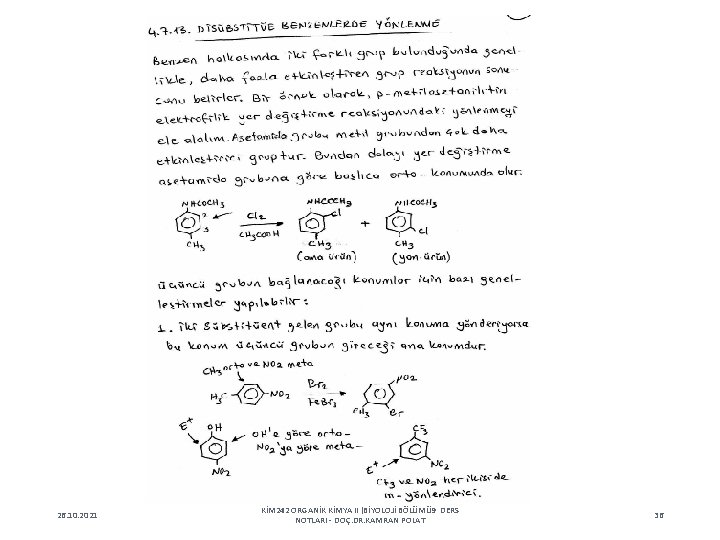 4.7.13. DİSÜBSTİTÜE BENZENLERDE YÖNLENME
Benzen halkasında iki farklı grup bulunduğunda genel-
likle, daha fazla etkinleştiren grup reaksiyonun sonu-
cunu belirler. Bir örnek olarak, p-metilasetanilitin
elektrofilik yer değiştirme reaksiyonundaki yönlenmeyi
ele alalım. Asetamido grubu metil grubundan çok daha
etkinleştirici gruptur. Bundan dolayı yer değiştirme
asetamido grubuna göre başlıca orto- konumunda olur.
NHCOCH3 NHCOCH3 NHCOCH3
2 Cl2 Cl +
3 CH3COOH Cl
CH3 CH3 CH3
(ana ürün) (yan ürün)
Üçüncü grubun bağlanacağı konumlar için bazı genel-
leştirmeler yapılabilir:
1. İki sübstitüent gelen grubu aynı konuma yönderiyorsa
bu konum üçüncü grubun gireceği ana konumdur.
CH3 orto ve NO2 meta
H3C NO2 Br2 NO2
FeBr3 CH3 Br
E+ OH OH'e göre orto-
NO2'ya göre meta-
NO2
CF3
E+ NO2
CF3 ve NO2 her ikisi de
m-yönlendirici.
26.10.2021
KİM242 ORGANİK KİMYA II (BİYOLOJİ BÖLÜMÜ)- DERS
NOTLARI - DOÇ.DR.KAMRAN POLAT
36